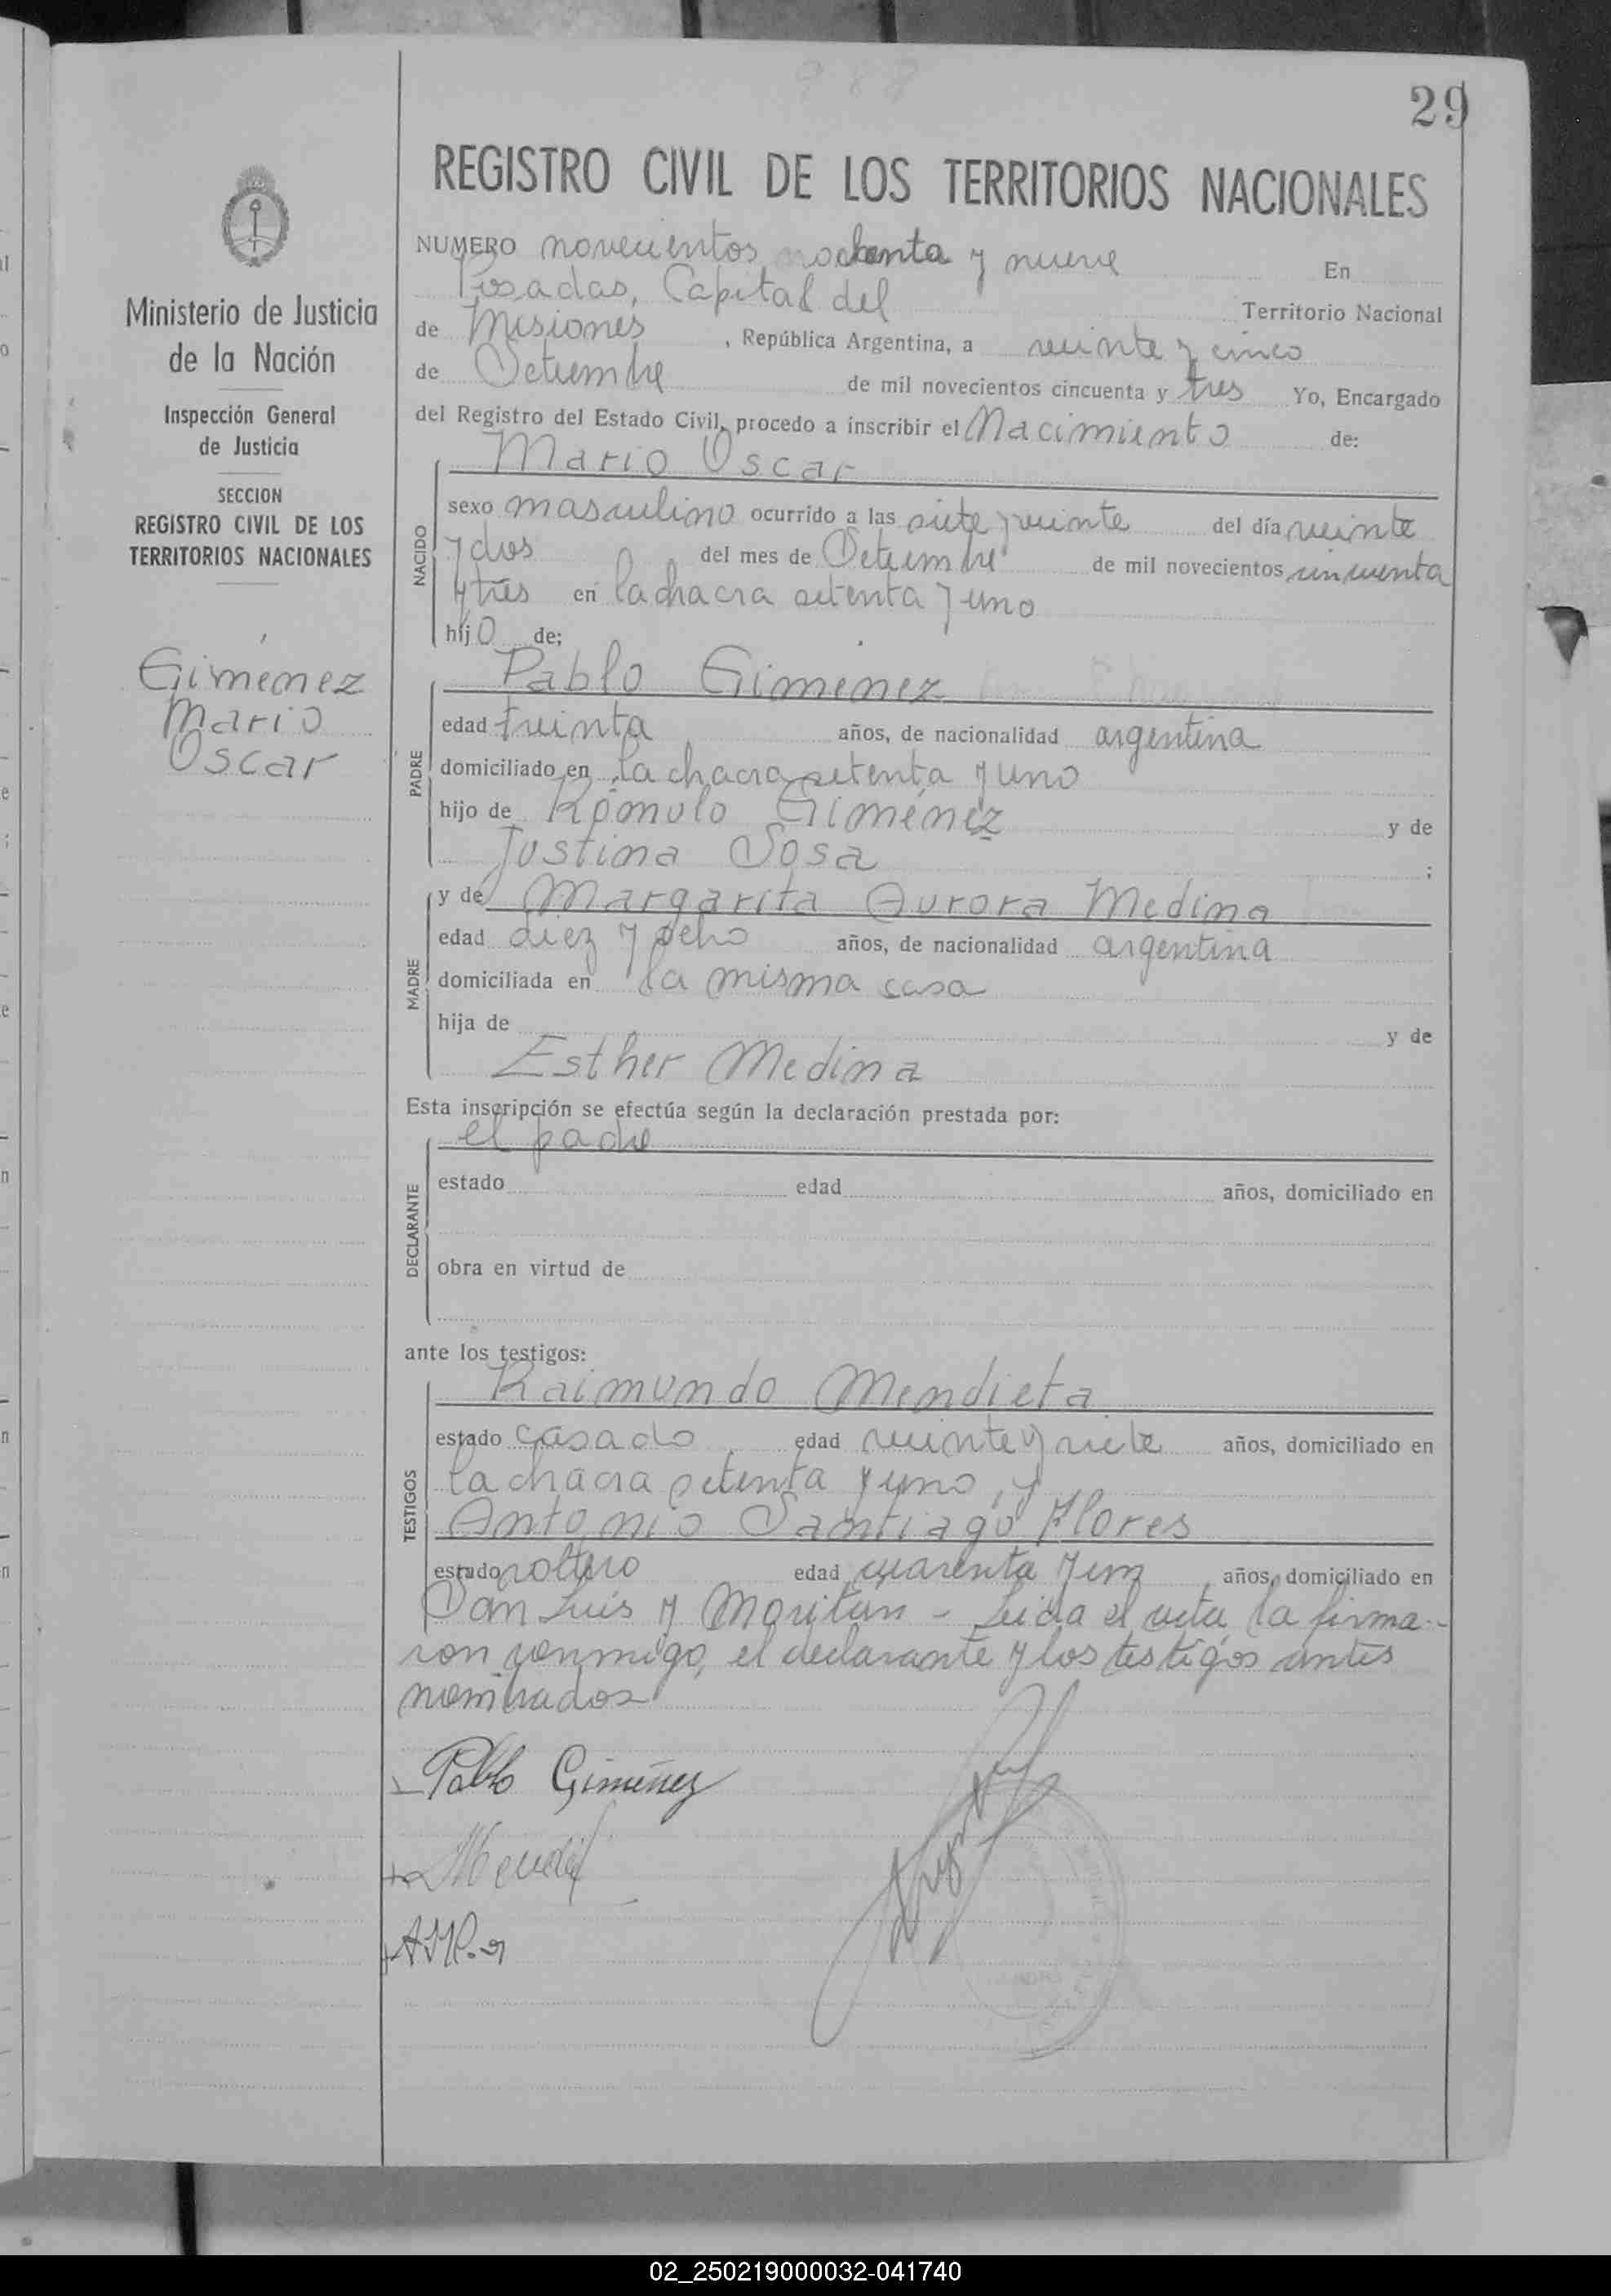 29
REGISTRO CIVIL DE LOS TERRITORIOS NACIONALES
Ministerio de Justicia
de la Nación
Inspección General
de Justicia
SECCION
REGISTRO CIVIL DE LOS
TERRITORIOS NACIONALES
Giménez
Mario
Oscar
NUMERO novecientos ochenta y nueve En
Posadas, Capital del Territorio Nacional
de Misiones, República Argentina, a veinte y cinco
de Setiembre de mil novecientos cincuenta y tres Yo, Encargado
del Registro del Estado Civil, procedo a inscribir el Nacimiento de:
NACIDO
Mario Oscar
sexo masculino ocurrido a las siete y veinte del día veinte
y dos del mes de Setiembre de mil novecientos cincuenta
y tres en la chacra setenta y uno
hijo de:
PADRE
Pablo Gimenez
edad treinta años, de nacionalidad argentina
domiciliado en la chacra setenta y uno
hijo de Rómulo Giménez y de
Justina Sosa ;
MADRE
y de Margarita Aurora Medina
edad diez y ocho años, de nacionalidad argentina
domiciliada en la misma casa
hija de y de
Esther Medina
Esta inscripción se efectúa según la declaración prestada por:
DECLARANTE
el padre
estado edad años, domiciliado en
obra en virtud de
ante los testigos:
TESTIGOS
Raimundo Mendieta
estado casado edad veinte y siete años, domiciliado en
la chacra setenta y uno, y
Antonio Santiago Flores
estado soltero edad cuarenta y un años, domiciliado en
San Luis y Moritan - Leida el acta, la firma-
ron conmigo, el declarante y los testigos antes
nombrados
Pablo Giménez
02_250219000032-041740